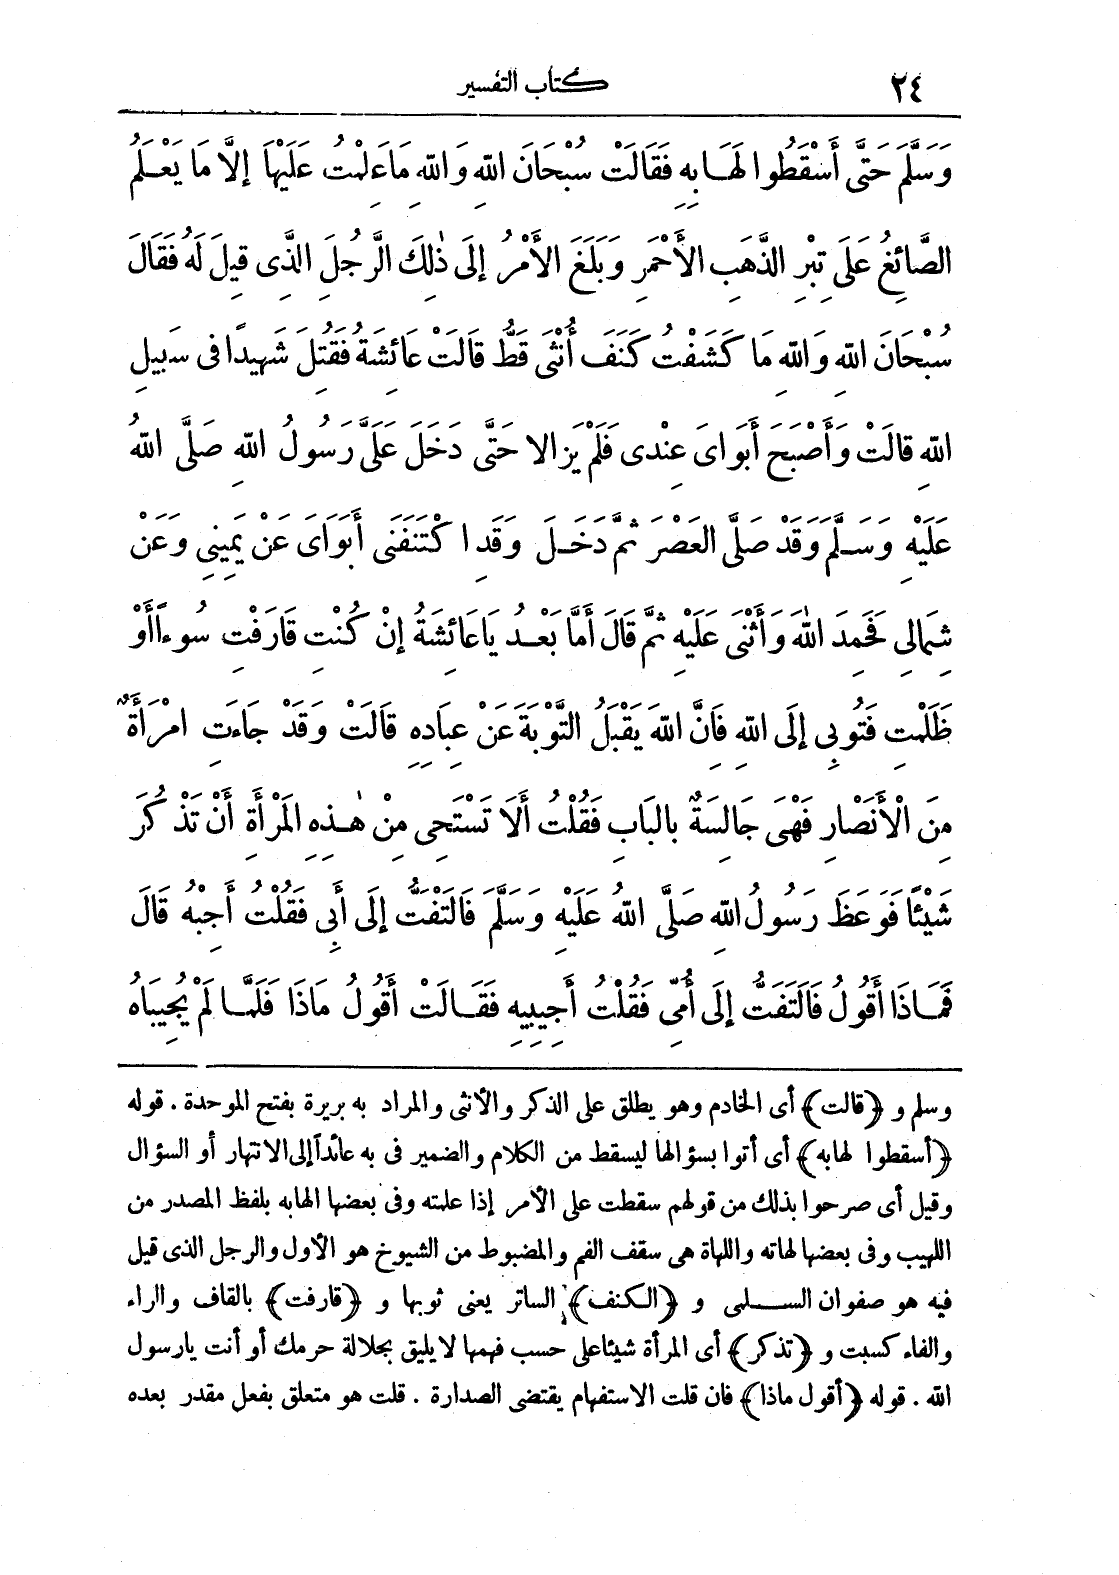 ٢٤ كتاب التفسير
وَسَلَّمَ حَتَّى أَسْقَطُوا لَهَا بِهِ فَقَالَتْ سُبْحَانَ اللّهِ وَاللّهِ مَا عَلِمْتُ عَلَيْهَا إِلاَّ مَا يَعْلَمُ
الصَّائِغُ عَلَى تِبْرِ الذَّهَبِ الأَحْمَرِ وَبَلَغَ الأَمْرُ إِلَى ذٰلِكَ الرَّجُلِ الَّذِى قِيلَ لَهُ فَقَالَ
سُبْحَانَ اللّهِ وَاللّهِ مَا كَشَفْتُ كَنَفَ أُنْثَى قَطُّ قَالَتْ عَائِشَةُ فَقُتِلَ شَهِيدًا فى سَبِيلِ
اللّهِ قَالَتْ وَأَصْبَحَ أَبَوَاىَ عِنْدِى فَلَمْ يَزَالا حَتَّى دَخَلَ عَلَىَّ رَسُولُ اللّهِ صَلَّى اللّهُ
عَلَيْهِ وَسَلَّمَ وَقَدْ صَلَّى العَصْرَ ثُمَّ دَخَلَ وَقَدِ اكْتَنَفَنِى أَبَوَاىَ عَنْ يَمِينِى وَعَنْ
شِمَالِى فَحَمِدَ اللّهَ وَأَثْنَى عَلَيْهِ ثُمَّ قَالَ أَمَّا بَعْدُ يَا عَائِشَةُ إِنْ كُنْتِ قَارَفْتِ سُوءًا أَوْ
ظَلَمْتِ فَتُوبِى إِلَى اللّهِ فَإِنَّ اللّهَ يَقْبَلُ التَّوْبَةَ عَنْ عِبَادِهِ قَالَتْ وَقَدْ جَاءَتِ امْرَأَةٌ
مِنَ الْأَنْصَارِ فَهْىَ جَالِسَةٌ بِالبَابِ فَقُلْتُ أَلاَ تَسْتَحِى مِنْ هٰذِهِ المَرْأَةِ أَنْ تَذْكُرَ
شَيْئًا فَوَعَظَ رَسُولُ اللّهِ صَلَّى اللّهُ عَلَيْهِ وَسَلَّمَ فَالتَفَتُّ إِلَى أَبِى فَقُلْتُ أَجِبْهُ قَالَ
فَمَاذَا أَقُولُ فَالتَفَتُّ إِلَى أُمِّى فَقُلْتُ أَجِيبِيهِ فَقَالَتْ أَقُولُ مَاذَا فَلَمَّا لَمْ يُجِيبَاهُ
وسلم و ﴿قالت﴾ أى الخادم وهو يطلق على الذكر والأنثى والمراد به بريرة بفتح الموحدة . قوله
﴿أسقطوا لهابه﴾ أى أتوا بسؤالها ليسقط من الكلام والضمير فى به عائدا إلى الانتهار أو السؤال
وقيل أى صرحوا بذلك من قولهم سقطت على الأمر إذا علمته وفى بعضها الهابه بلفظ المصدر من
اللهيب وفى بعضها لهاته واللهاة هى سقف الفم والمضبوط من الشيوخ هو الأول والرجل الذى قيل
فيه هو صفوان السلمى و ﴿الكنف﴾ الساتر يعنى ثوبها و ﴿قارفت﴾ بالقاف والراء
والفاء كسبت و ﴿تذكر﴾ أى المرأة شيئا على حسب فهمها لا يليق بجلالة حرمك أو أنت يارسول
الله . قوله ﴿أقول ماذا﴾ فان قلت الاستفهام يقتضى الصدارة . قلت هو متعلق بفعل مقدر بعده